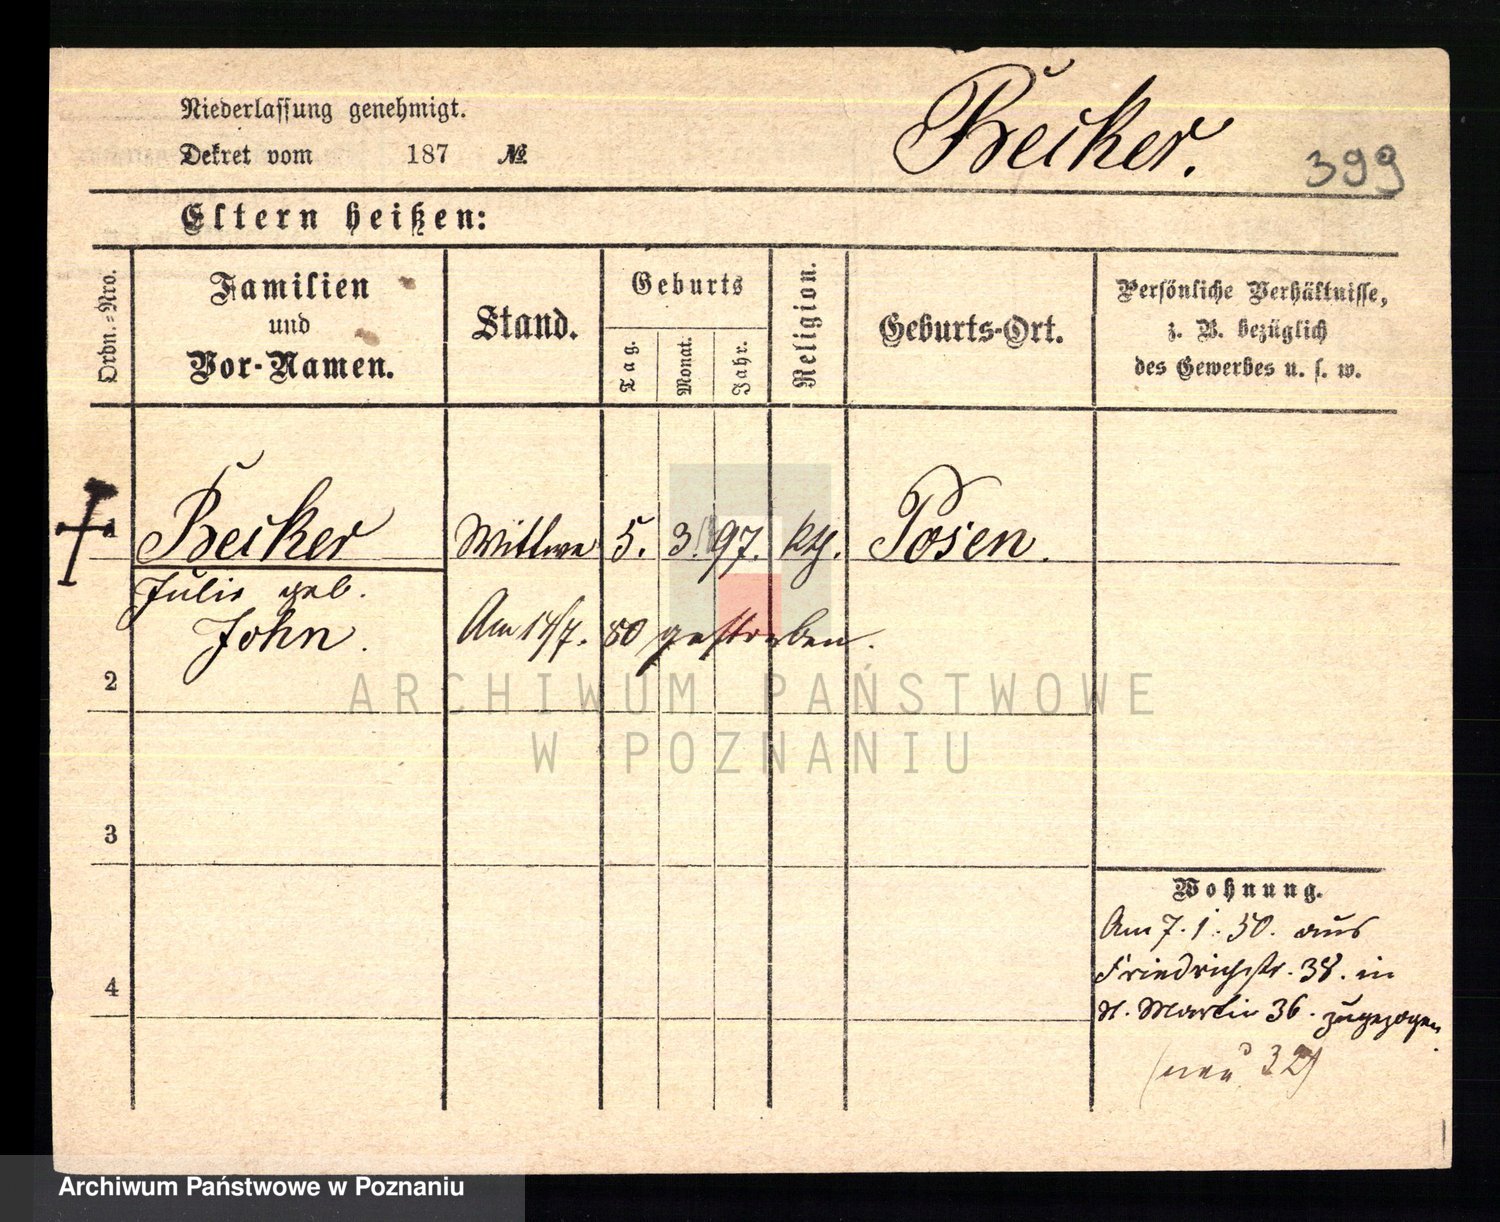 Niederlassung genehmigt.
Dekret vom 187 №
Becker.
399
Eltern heißen:
Ordn.-Nro.
Familien
und
Vor-Namen.
Stand.
Geburts
Tag.
Monat.
Jahr.
Religion.
Geburts-Ort.
Persönliche Verhältnisse,
z. B. bezüglich
des Gewerbes u. s. w.
1 Becker Wittwe 5. 3. 97. kth. Posen.
Julie geb.
John. Am 80 gestorben.
2
3
4
Wohnung.
Am 7. 1. 50. aus
Friedrichstr. 38. in
St. Martin 36. zugezogen.
(neu 32)
ARCHIWUM PAŃSTWOWE
W POZNANIU
Archiwum Państwowe w Poznaniu